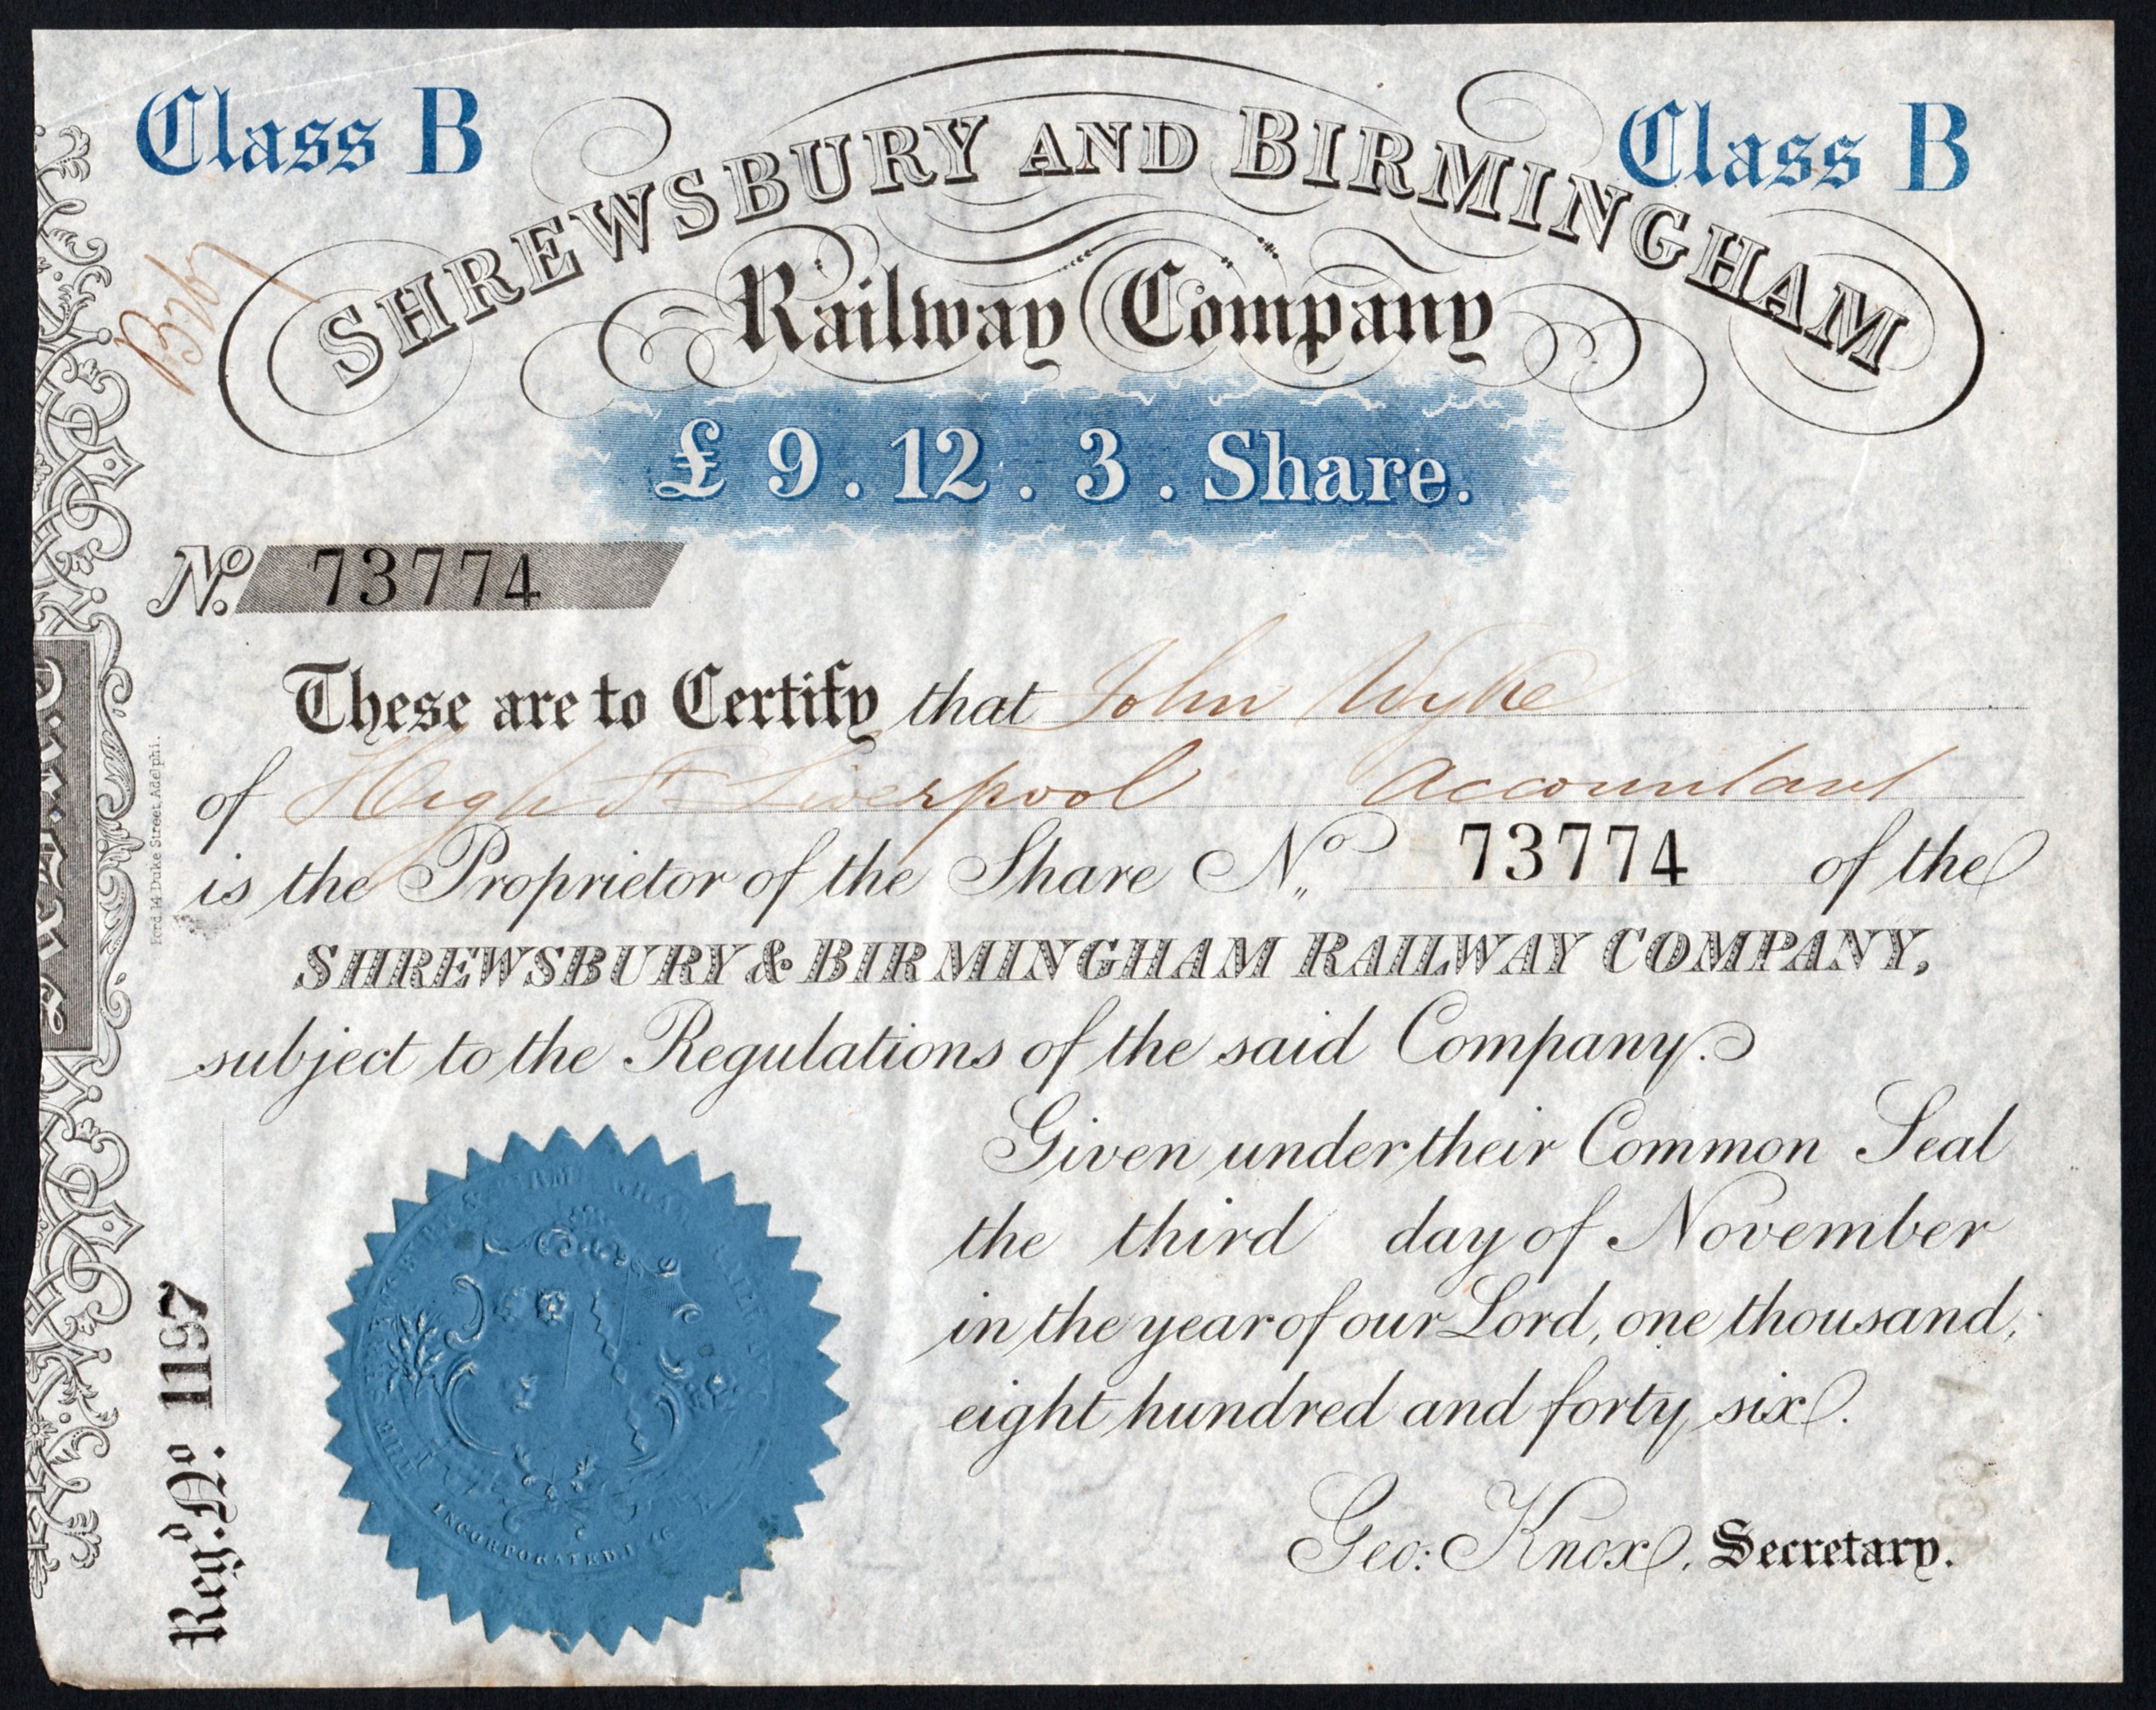 Class B
Class B
SHREWSBURY AND BIRMINGHAM
Railway Company
£ 9 . 12 . 3 . Share.
No. 73774
These are to Certify that John Wyke
of High St Liverpool Accountant
is the Proprietor of the Share No. 73774 of the
SHREWSBURY & BIRMINGHAM RAILWAY COMPANY,
subject to the Regulations of the said Company.
Given under their Common Seal
the third day of November
in the year of our Lord, one thousand,
eight hundred and forty six.
Geo: Knox, Secretary.
Regd. No. 1197
Ford. 14 Duke Street Adelphi.
INCORPORATED